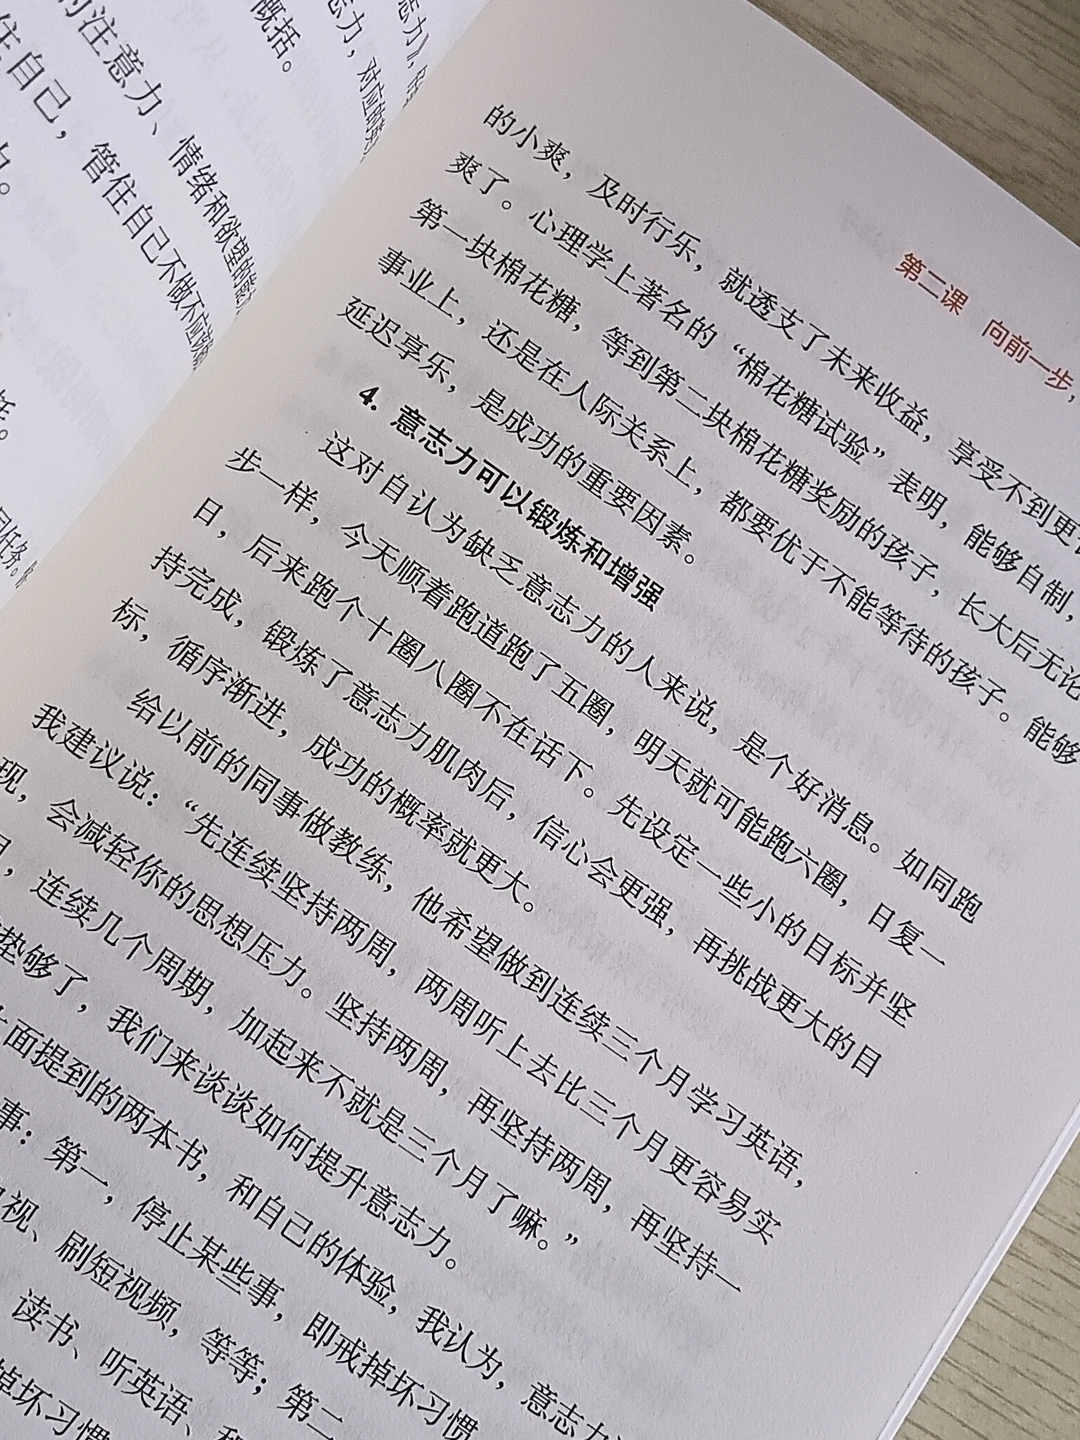 志力》，
志力，对应的
概括。
的注意力、情绪和欲望的
住自己，管住自己不做不应
力。
括。
同任务。
第二课 向前一步，
的小爽，及时行乐，就透支了未来收益，享受不到更
爽了。心理学上著名的“棉花糖试验”表明，能够自制，
第一块棉花糖，等到第二块棉花糖奖励的孩子，长大后无论
事业上，还是在人际关系上，都要优于不能等待的孩子。能够
延迟享乐，是成功的重要因素。
4. 意志力可以锻炼和增强
这对自认为缺乏意志力的人来说，是个好消息。如同跑
步一样，今天顺着跑道跑了五圈，明天就可能跑六圈，日复一
日，后来跑个十圈八圈不在话下。先设定一些小的目标并坚
持完成，锻炼了意志力肌肉后，信心会更强，再挑战更大的目
标，循序渐进，成功的概率就更大。
给以前的同事做教练，他希望做到连续三个月学习英语，
我建议说：“先连续坚持两周，两周听上去比三个月更容易实
现，会减轻你的思想压力。坚持两周，再坚持两周，再坚持一
周，连续几个周期，加起来不就是三个月了嘛。”
垫够了，我们来谈谈如何提升意志力。
上面提到的两本书，和自己的体验，我认为，意志力
事：第一，停止某些事，即戒掉坏习惯
视、刷短视频，等等；第二
读书、听英语、
掉坏习惯